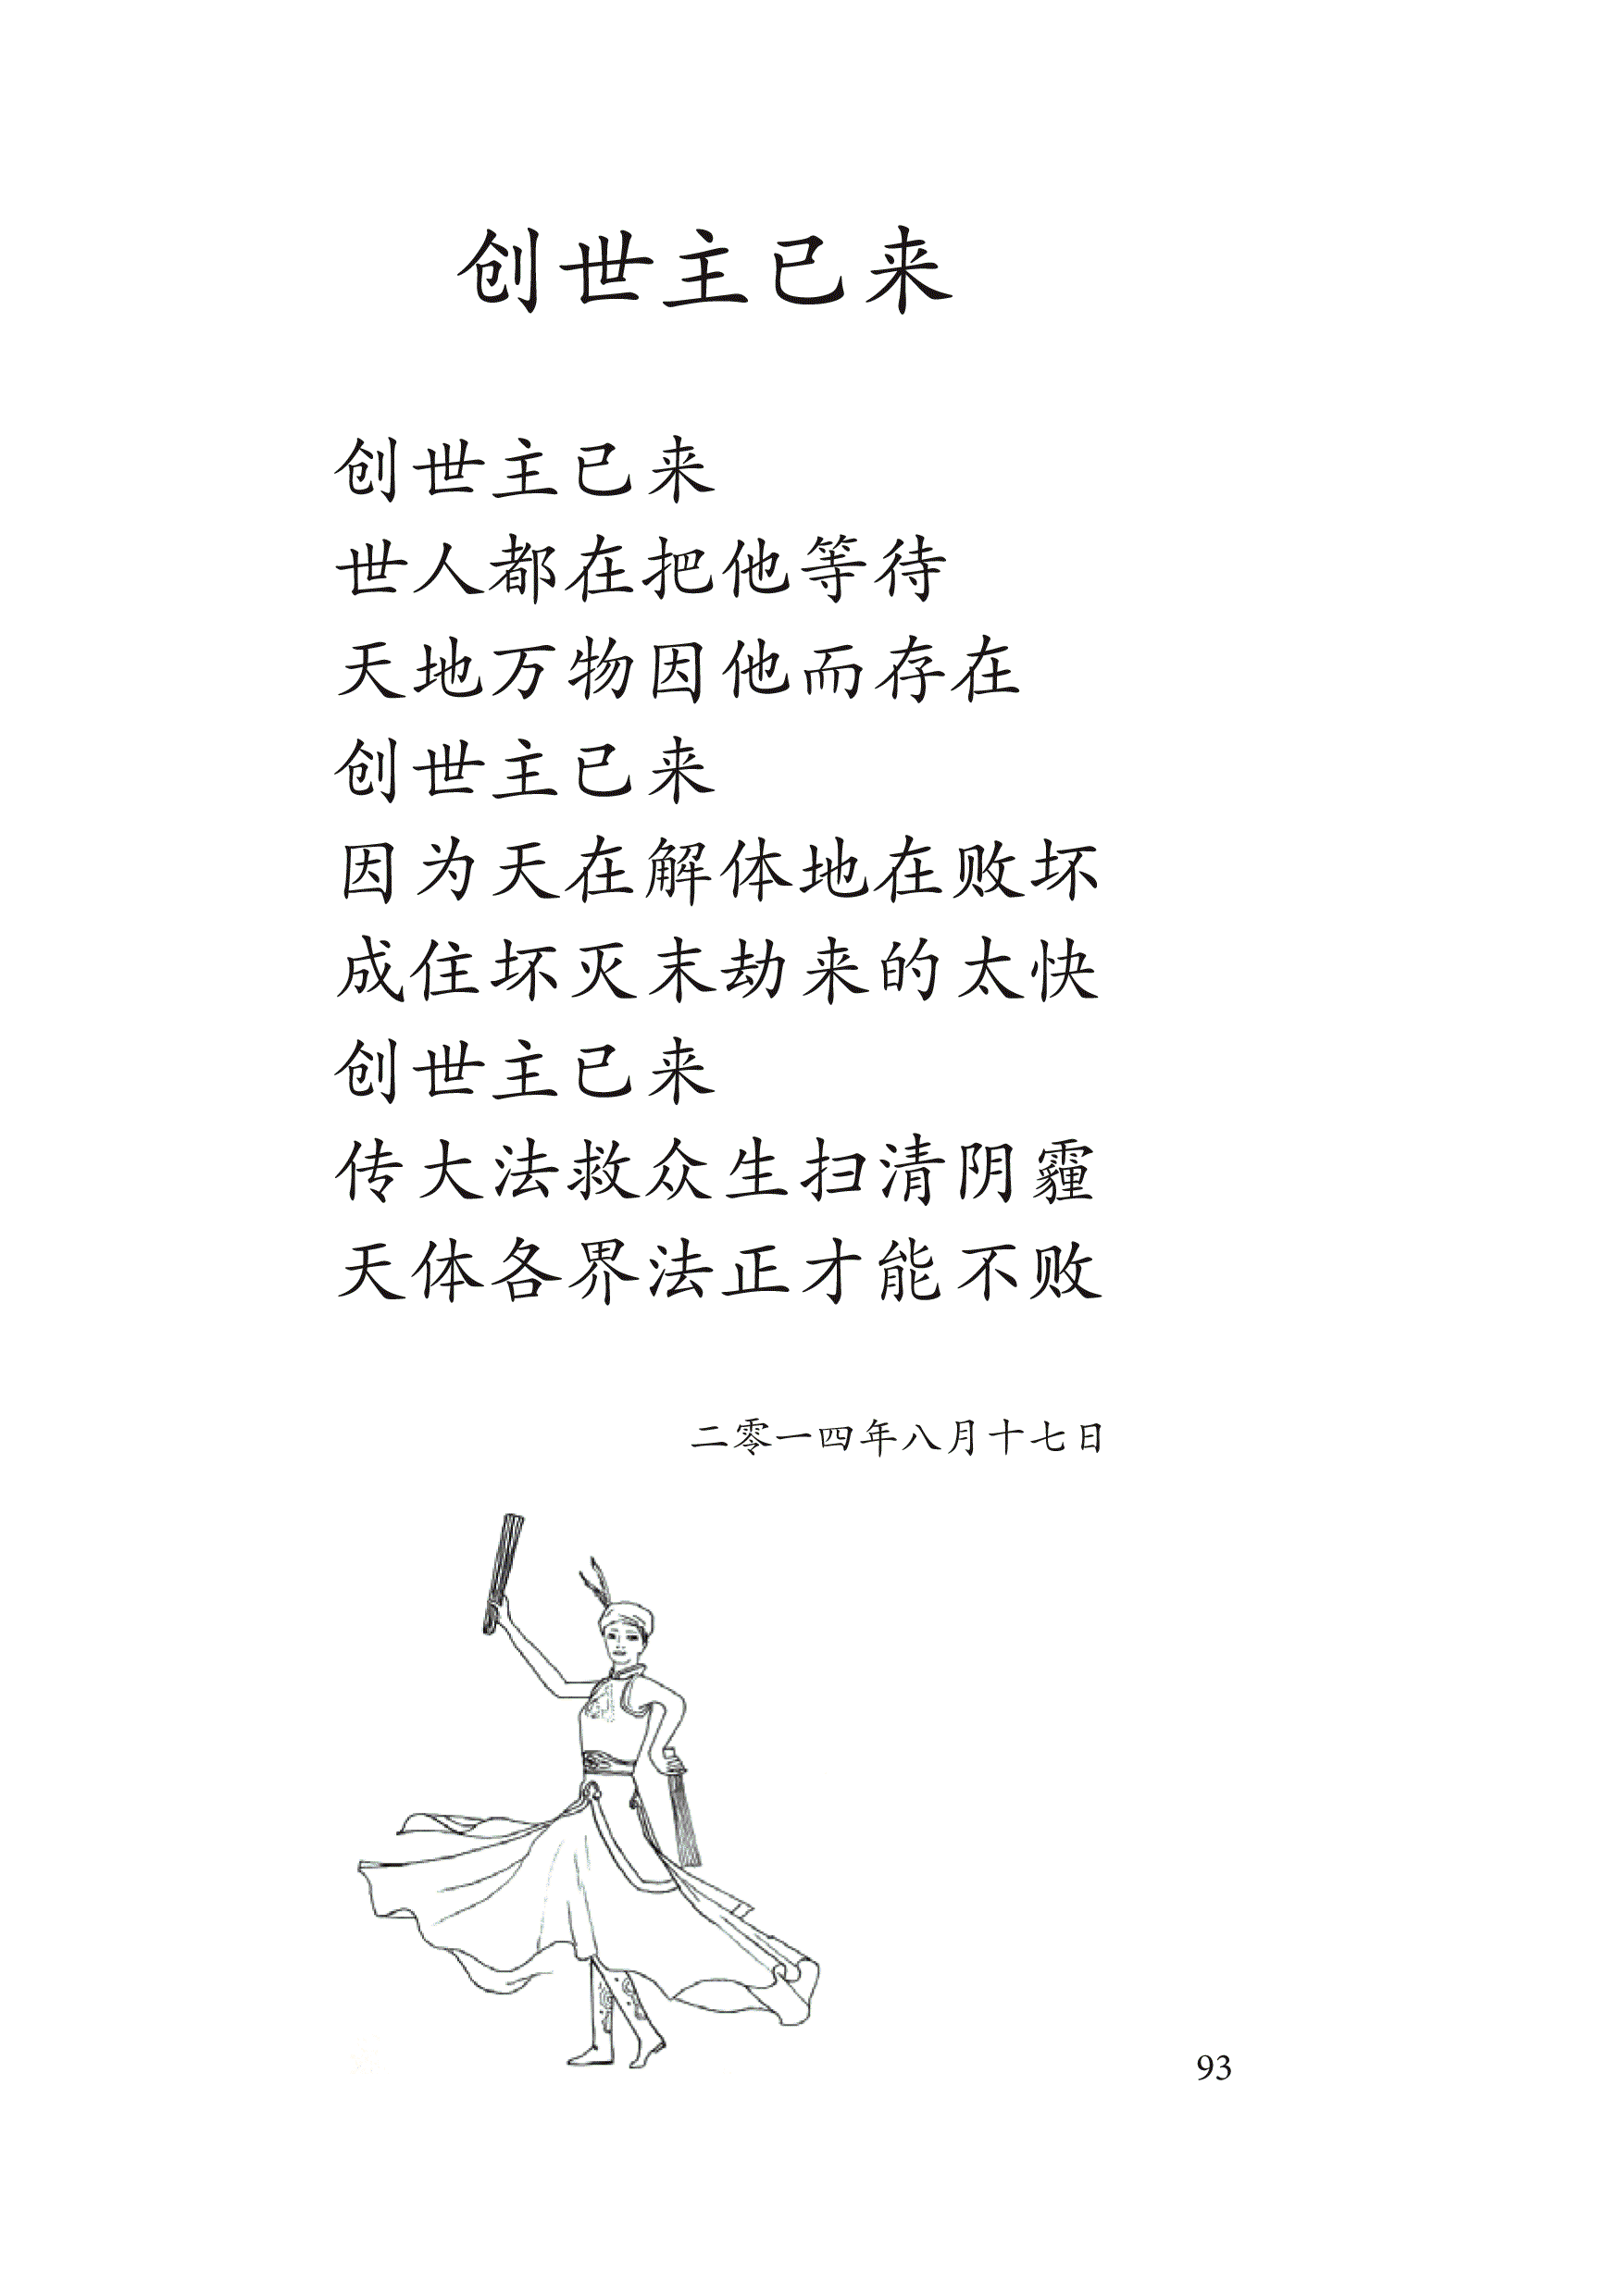 创世主已来
创世主已来
世人都在把他等待
天地万物因他而存在
创世主已来
因为天在解体地在败坏
成住坏灭末劫来的太快
创世主已来
传大法救众生扫清阴霾
天体各界法正才能不败
二零一四年八月十七日
93